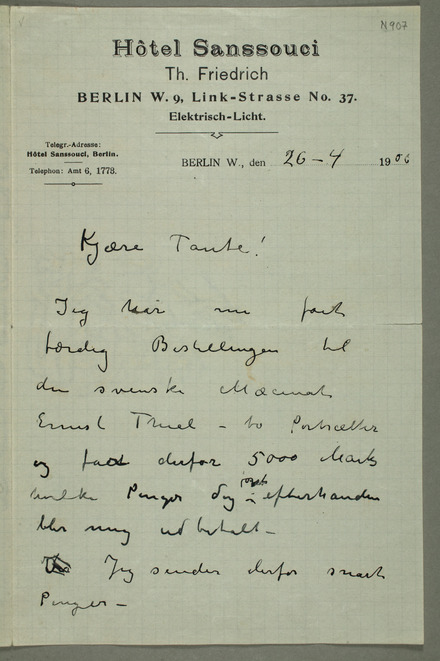 N 907
Hôtel Sanssouci
Th. Friedrich
BERLIN W. 9, Link-Strasse No. 37.
Elektrisch-Licht.
Telegr.-Adresse:
Hôtel Sanssouci, Berlin.
Telephon: Amt 6, 1773.
BERLIN W., den 26-4 1906
Kjære Tante!
Jeg har nu fåt
færdig Bestellingen til
den svenske Mæcenat
Ernest Thiel – to Portrætter
og fåt derfor 5000 Mark
hvilke Penger dog efterhånden
blir mig udbetalt –
Jeg sender derfor snart
Penger –